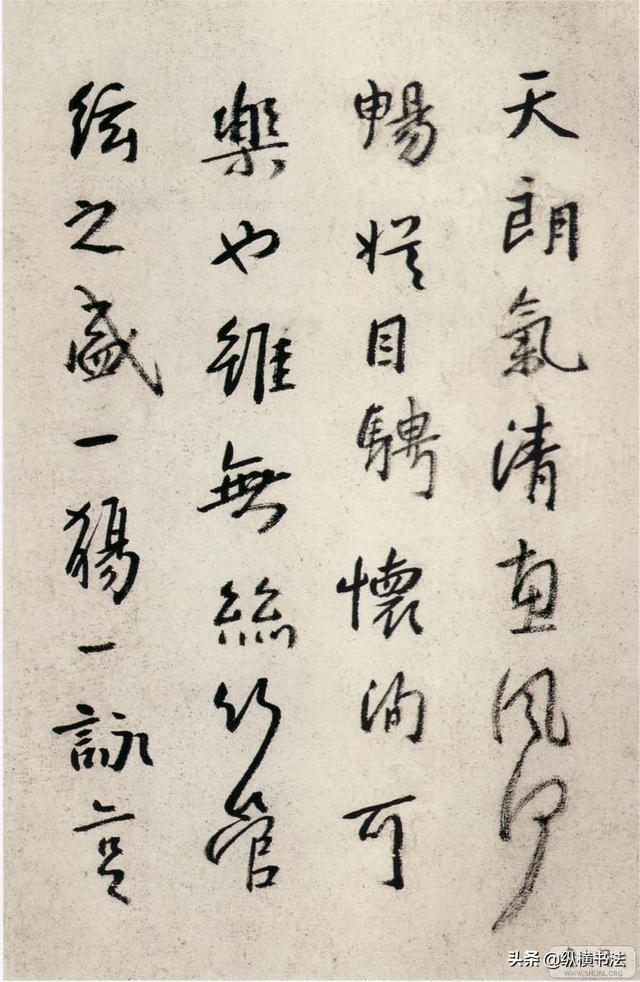 天朗氣清惠風和
暢娱目騁懷洵可
樂也雖無絲竹管
絃之盛一觴一詠
头条 @纵横书法
WWW.SHUFA.ORG